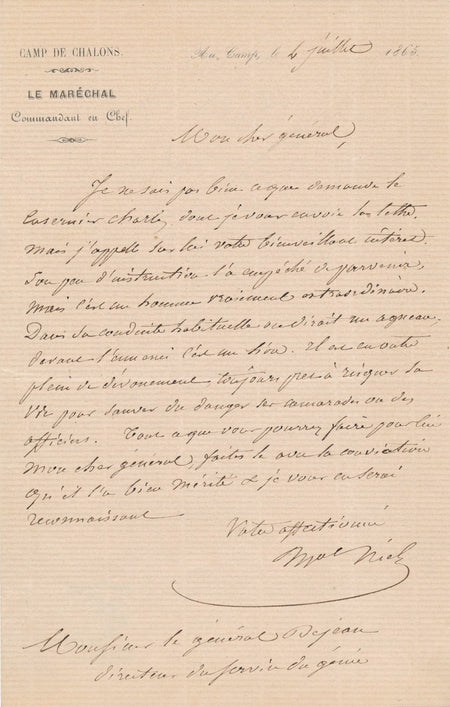 CAMP DE CHALONS.
Au Camp, le 4 juillet 1865
LE MARÉCHAL
Commandant en Chef.
Mon cher général,
Je ne sais pas bien ce que demande le
casernier Charlez dont je vous envoie la lettre.
mais j'appelle sur lui votre bienveillant intérêt.
Son peu d'instruction l'a empêché de parvenir,
mais c'est un homme vraiment extraordinaire.
Dans sa conduite habituelle on dirait un agneau.
devant l'ennemi c'est un lion. Il est en outre
plein de dévouement toujours prêt à risquer sa
vie pour sauver du danger ses camarades ou des
officiers. Tout ce que vous pourrez faire pour lui
mon cher général, faites le avec la conviction
qu'il l'a bien mérité & je vous en serai
reconnaissant
Votre affectionné
Mal Niel
Monsieur le général Dejean
directeur du service du génie